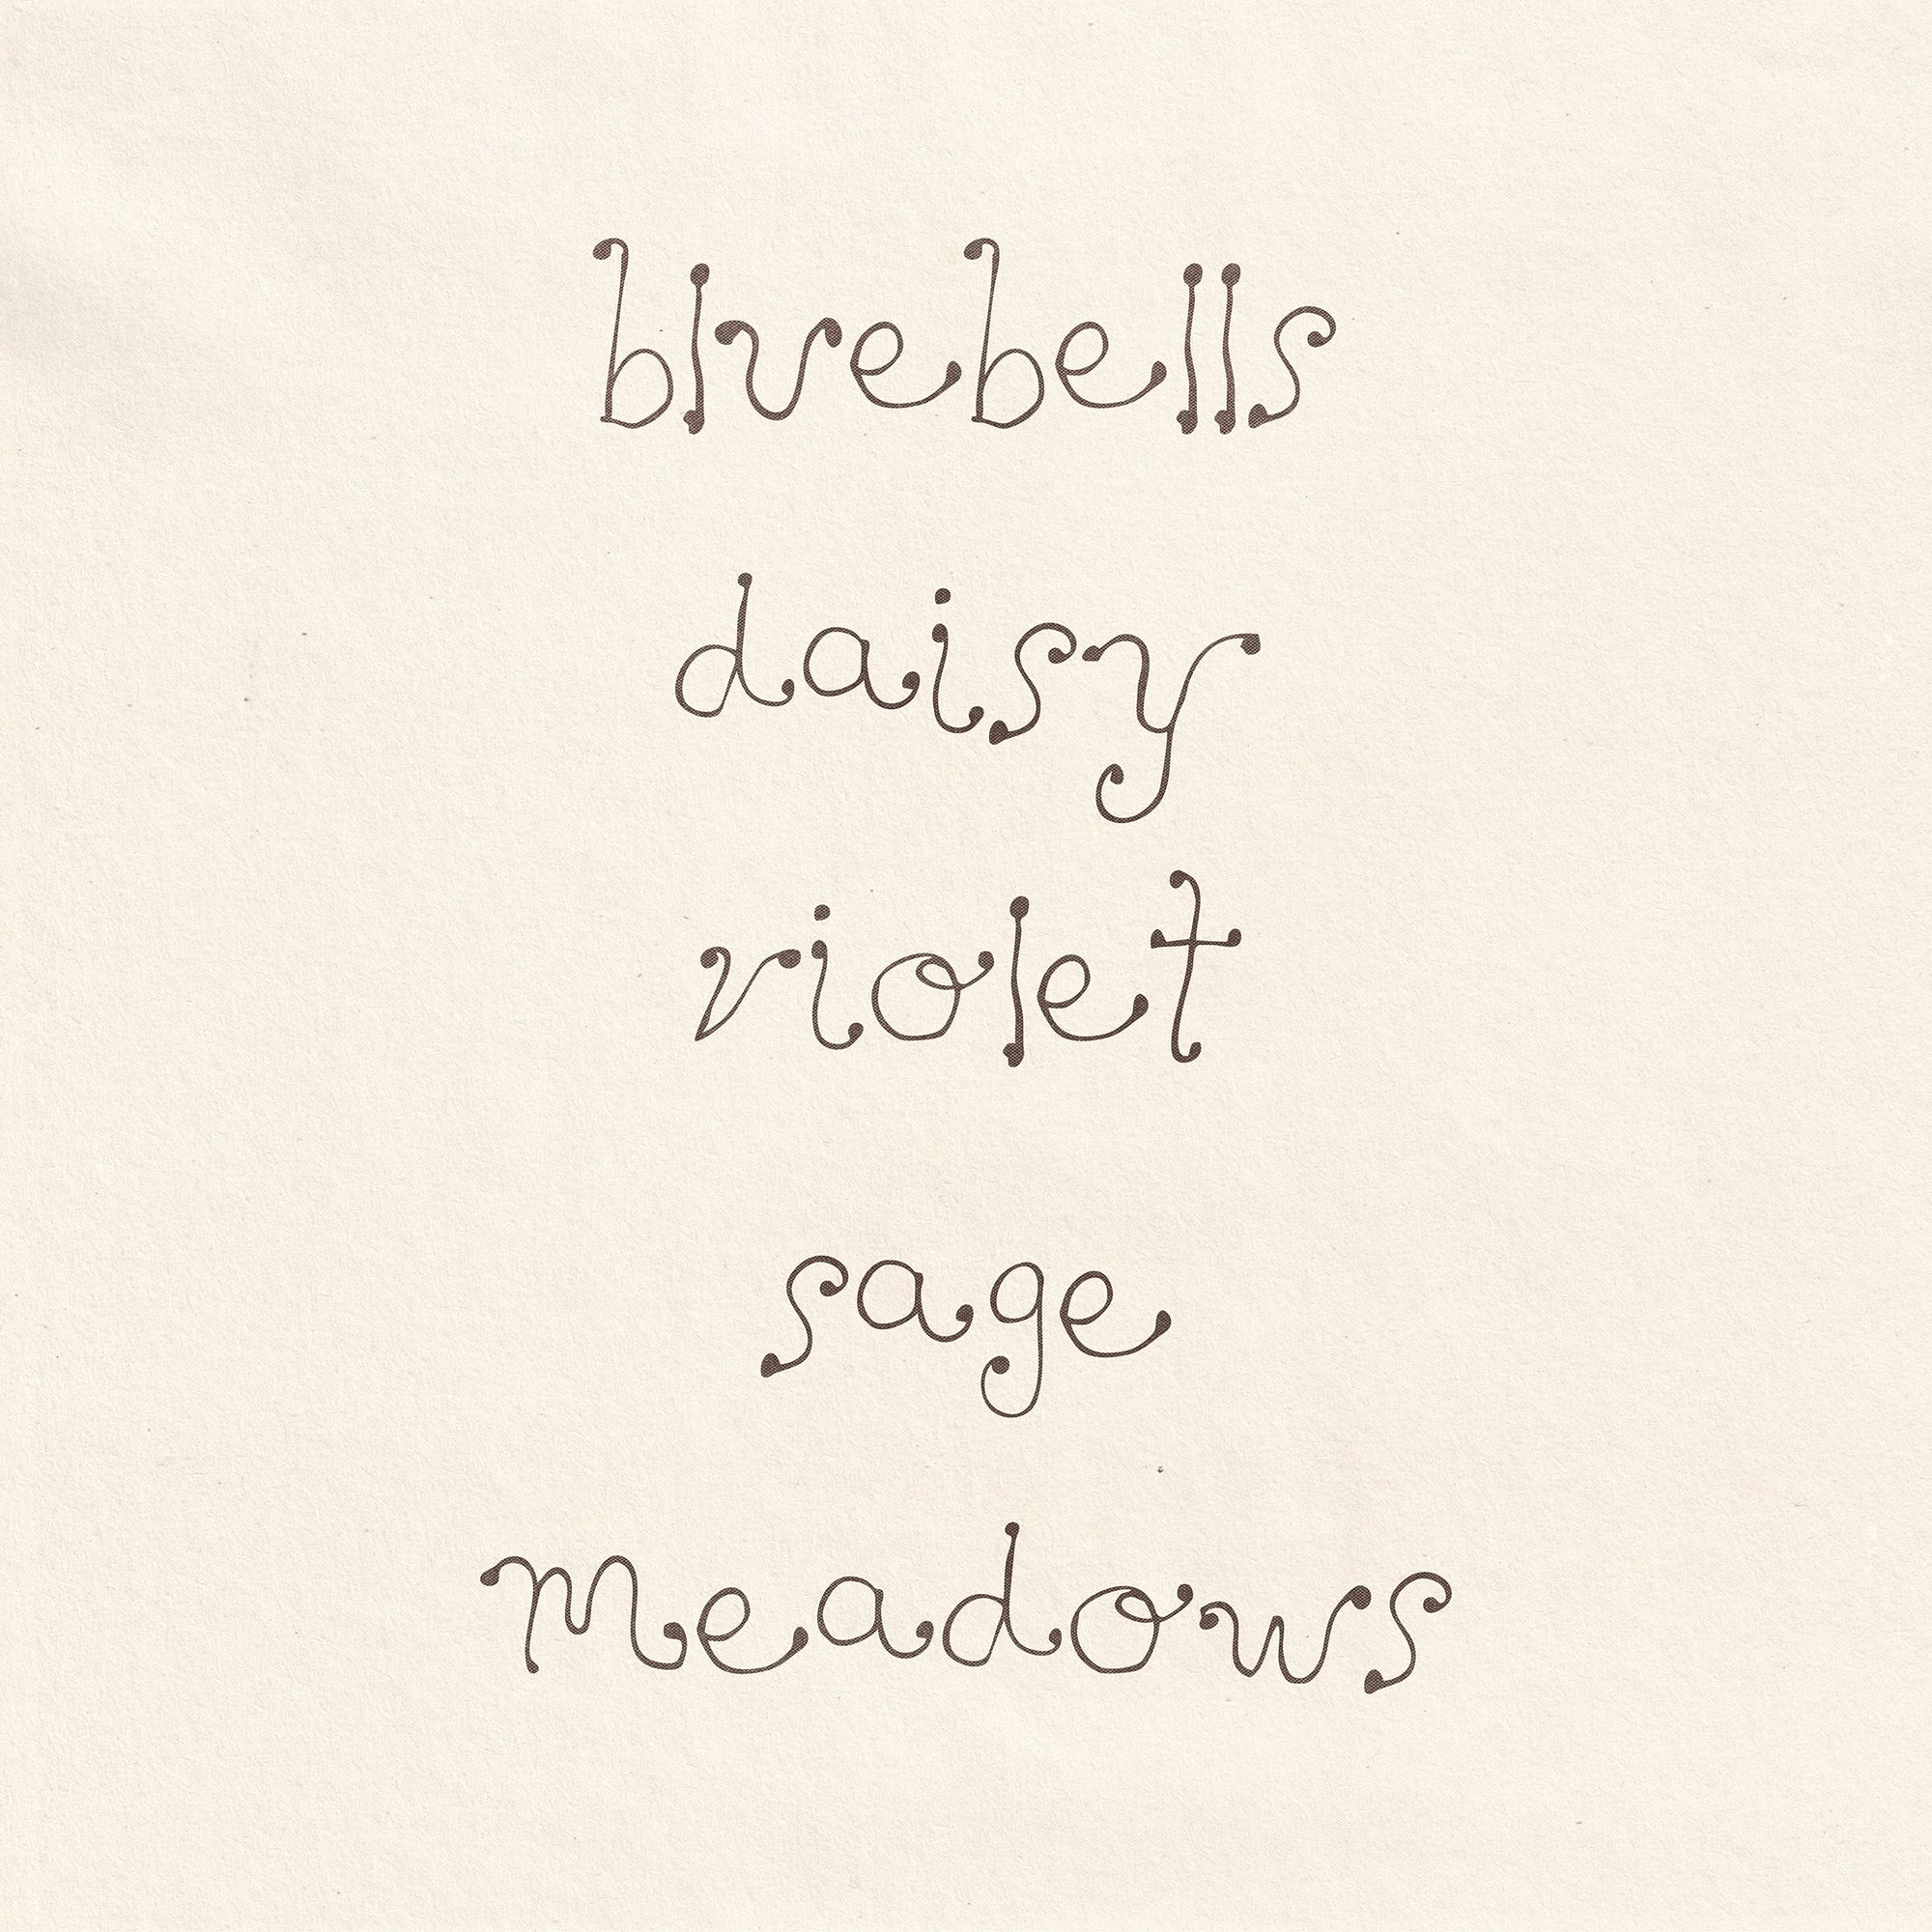 bluebells
daisy
violet
sage
meadows